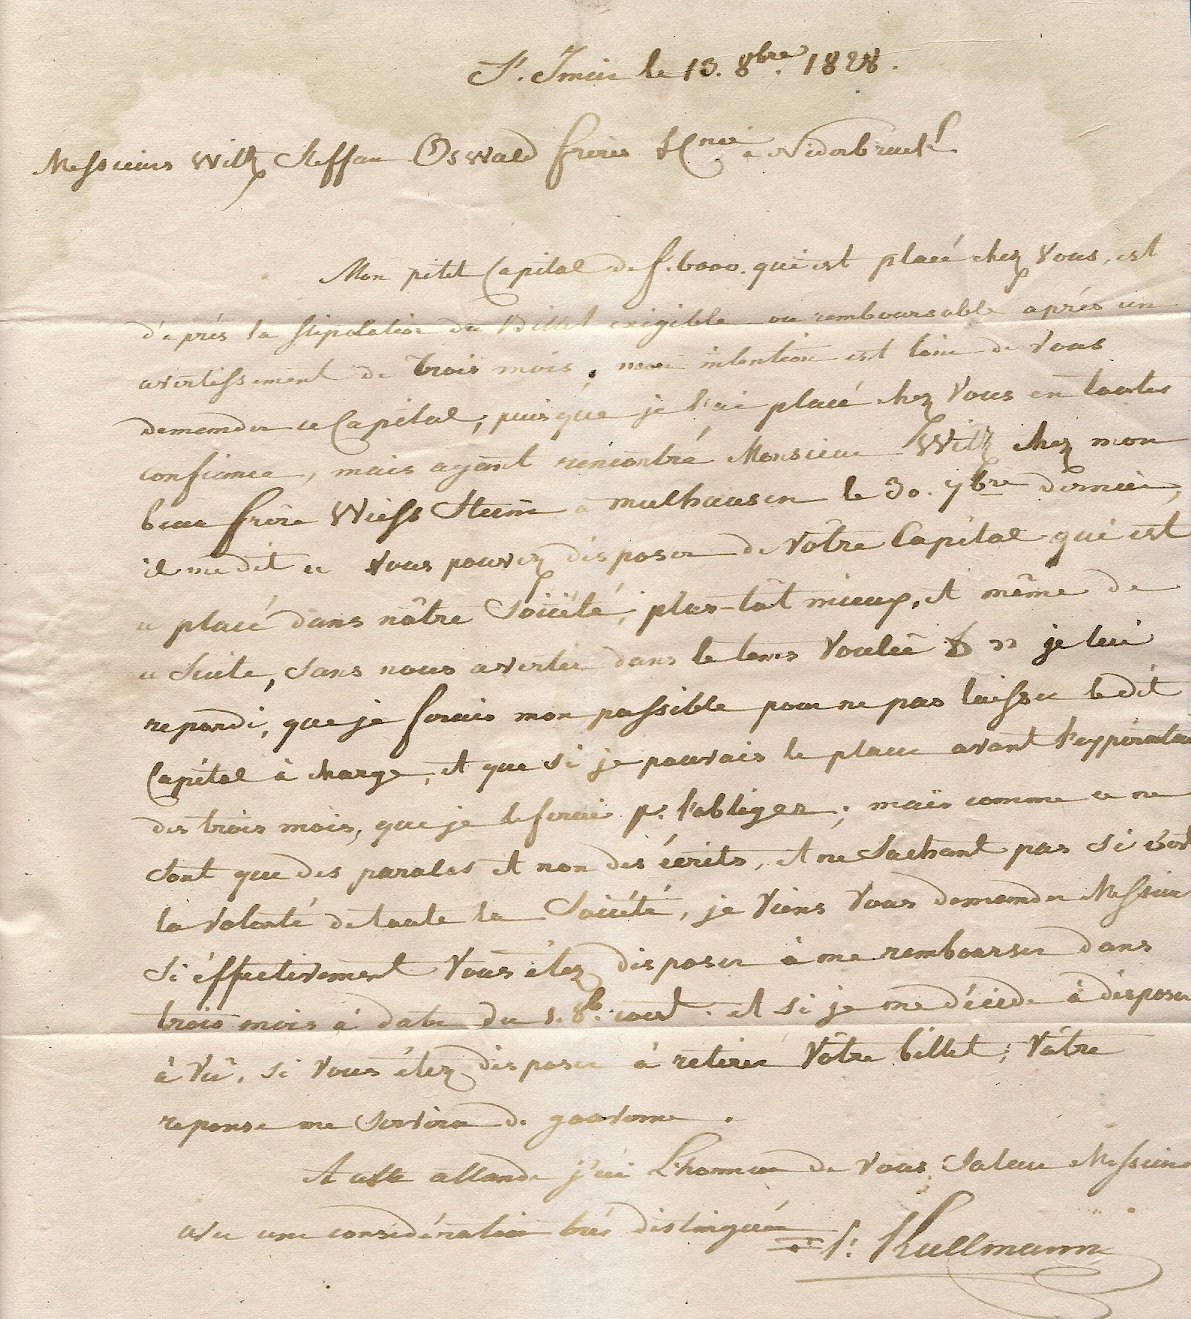 St. Imier le 13. 8bre. 1828.
Messieurs Witz Steffan Oswald frères & Cnie à Niderbruck
Mon petit Capital de f. 6000. qui est placé chez Vous, est
d'après la stipulation du Billet exigible ou remboursable après un
avertissement de trois mois, mon intention est loin de Vous
demander ce Capital, puisque je l'ai placé chez Vous en toutes
confiance, mais ayant rencontré Monsieur Witz chez mon
beau frère Wiess à mulhausen le 30. 7bre dernier,
il me dit « Vous pouvez disposer de Vôtre Capital qui est
« placé dans nôtre Société, plus-tôt mieux, et même de
« Suite, Sans nous avertir dans le tems Voulu » je lui
repondi, que je ferais mon possible pour ne pas laisser le dit
Capital à charge, et que si je pouvais le placer avant l'expiration
des trois mois, que je le ferai pr. l'obliger; mais comme ce ne
Sont que des paroles et non des écrits, et ne Sachant pas Si c'est
la Volonté de toute la Société, je Viens Vous demander Messieurs
Si éffectivement Vous êtez disposer à me rembourser dans
trois mois à date du 1. 8b. court. et si je me décide à disposer
à Vû, si Vous êtez disposer à retirer Vôtre billet; Vôtre
reponse me Servira de gouverne.
A cette attende j'ai L'honneur de Vous Saluer Messieurs
avec une considération très distinguée
Kullmann